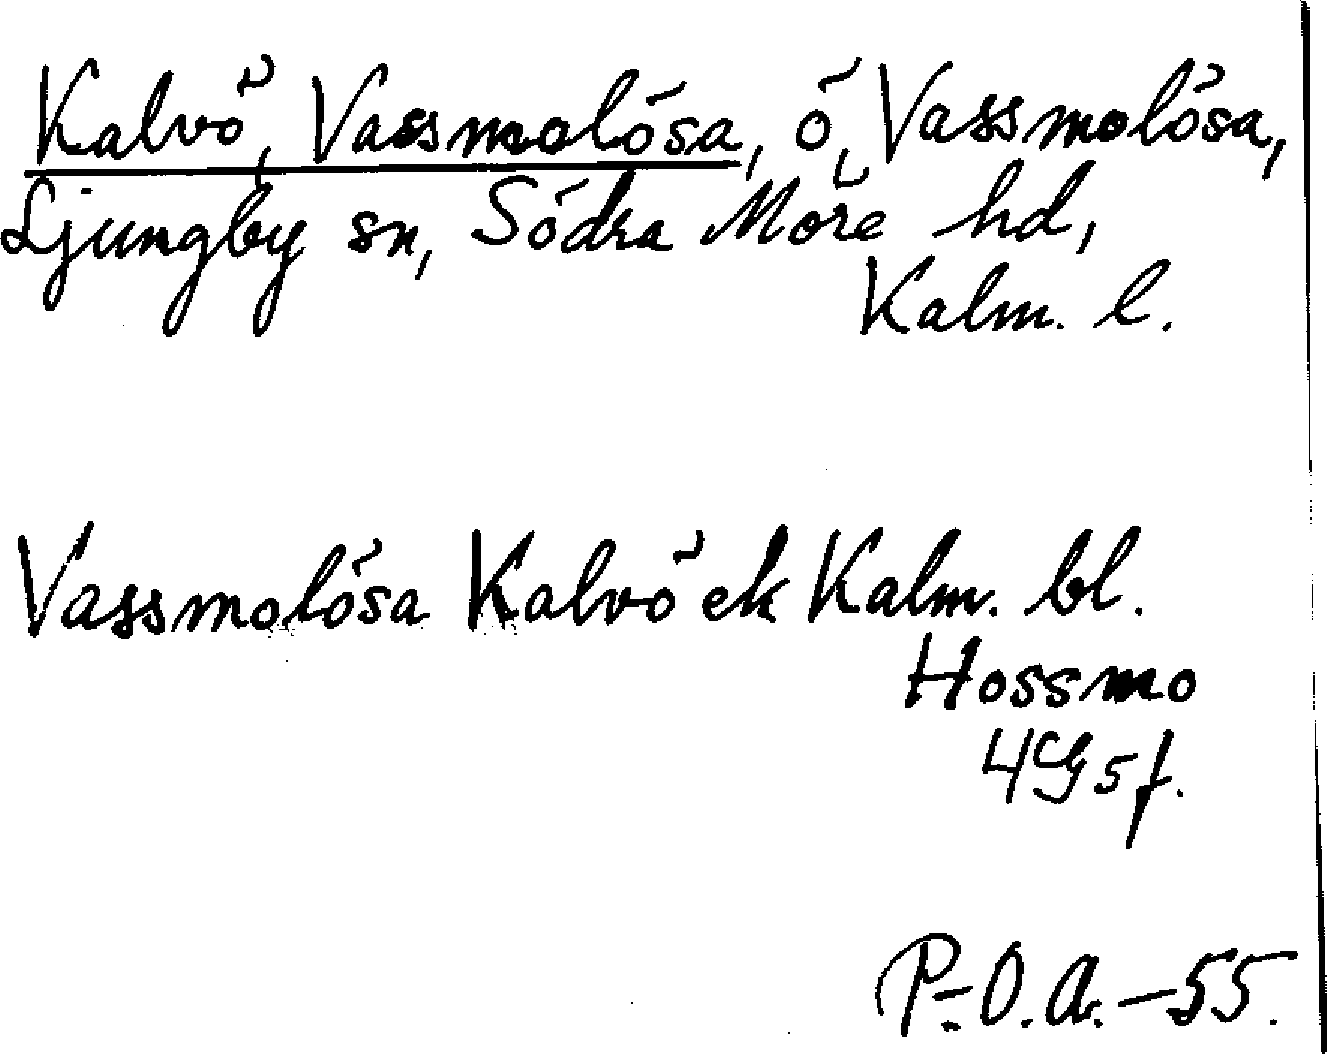 Kalvö, Vassmolösa, ö, Vassmolösa,
Ljungby sn, Södra Möre hd,
Kalm. l.
Vassmolösa Kalvö ek Kalm. bl.
Hossmo
4G5f.
P.-O.A.-55.